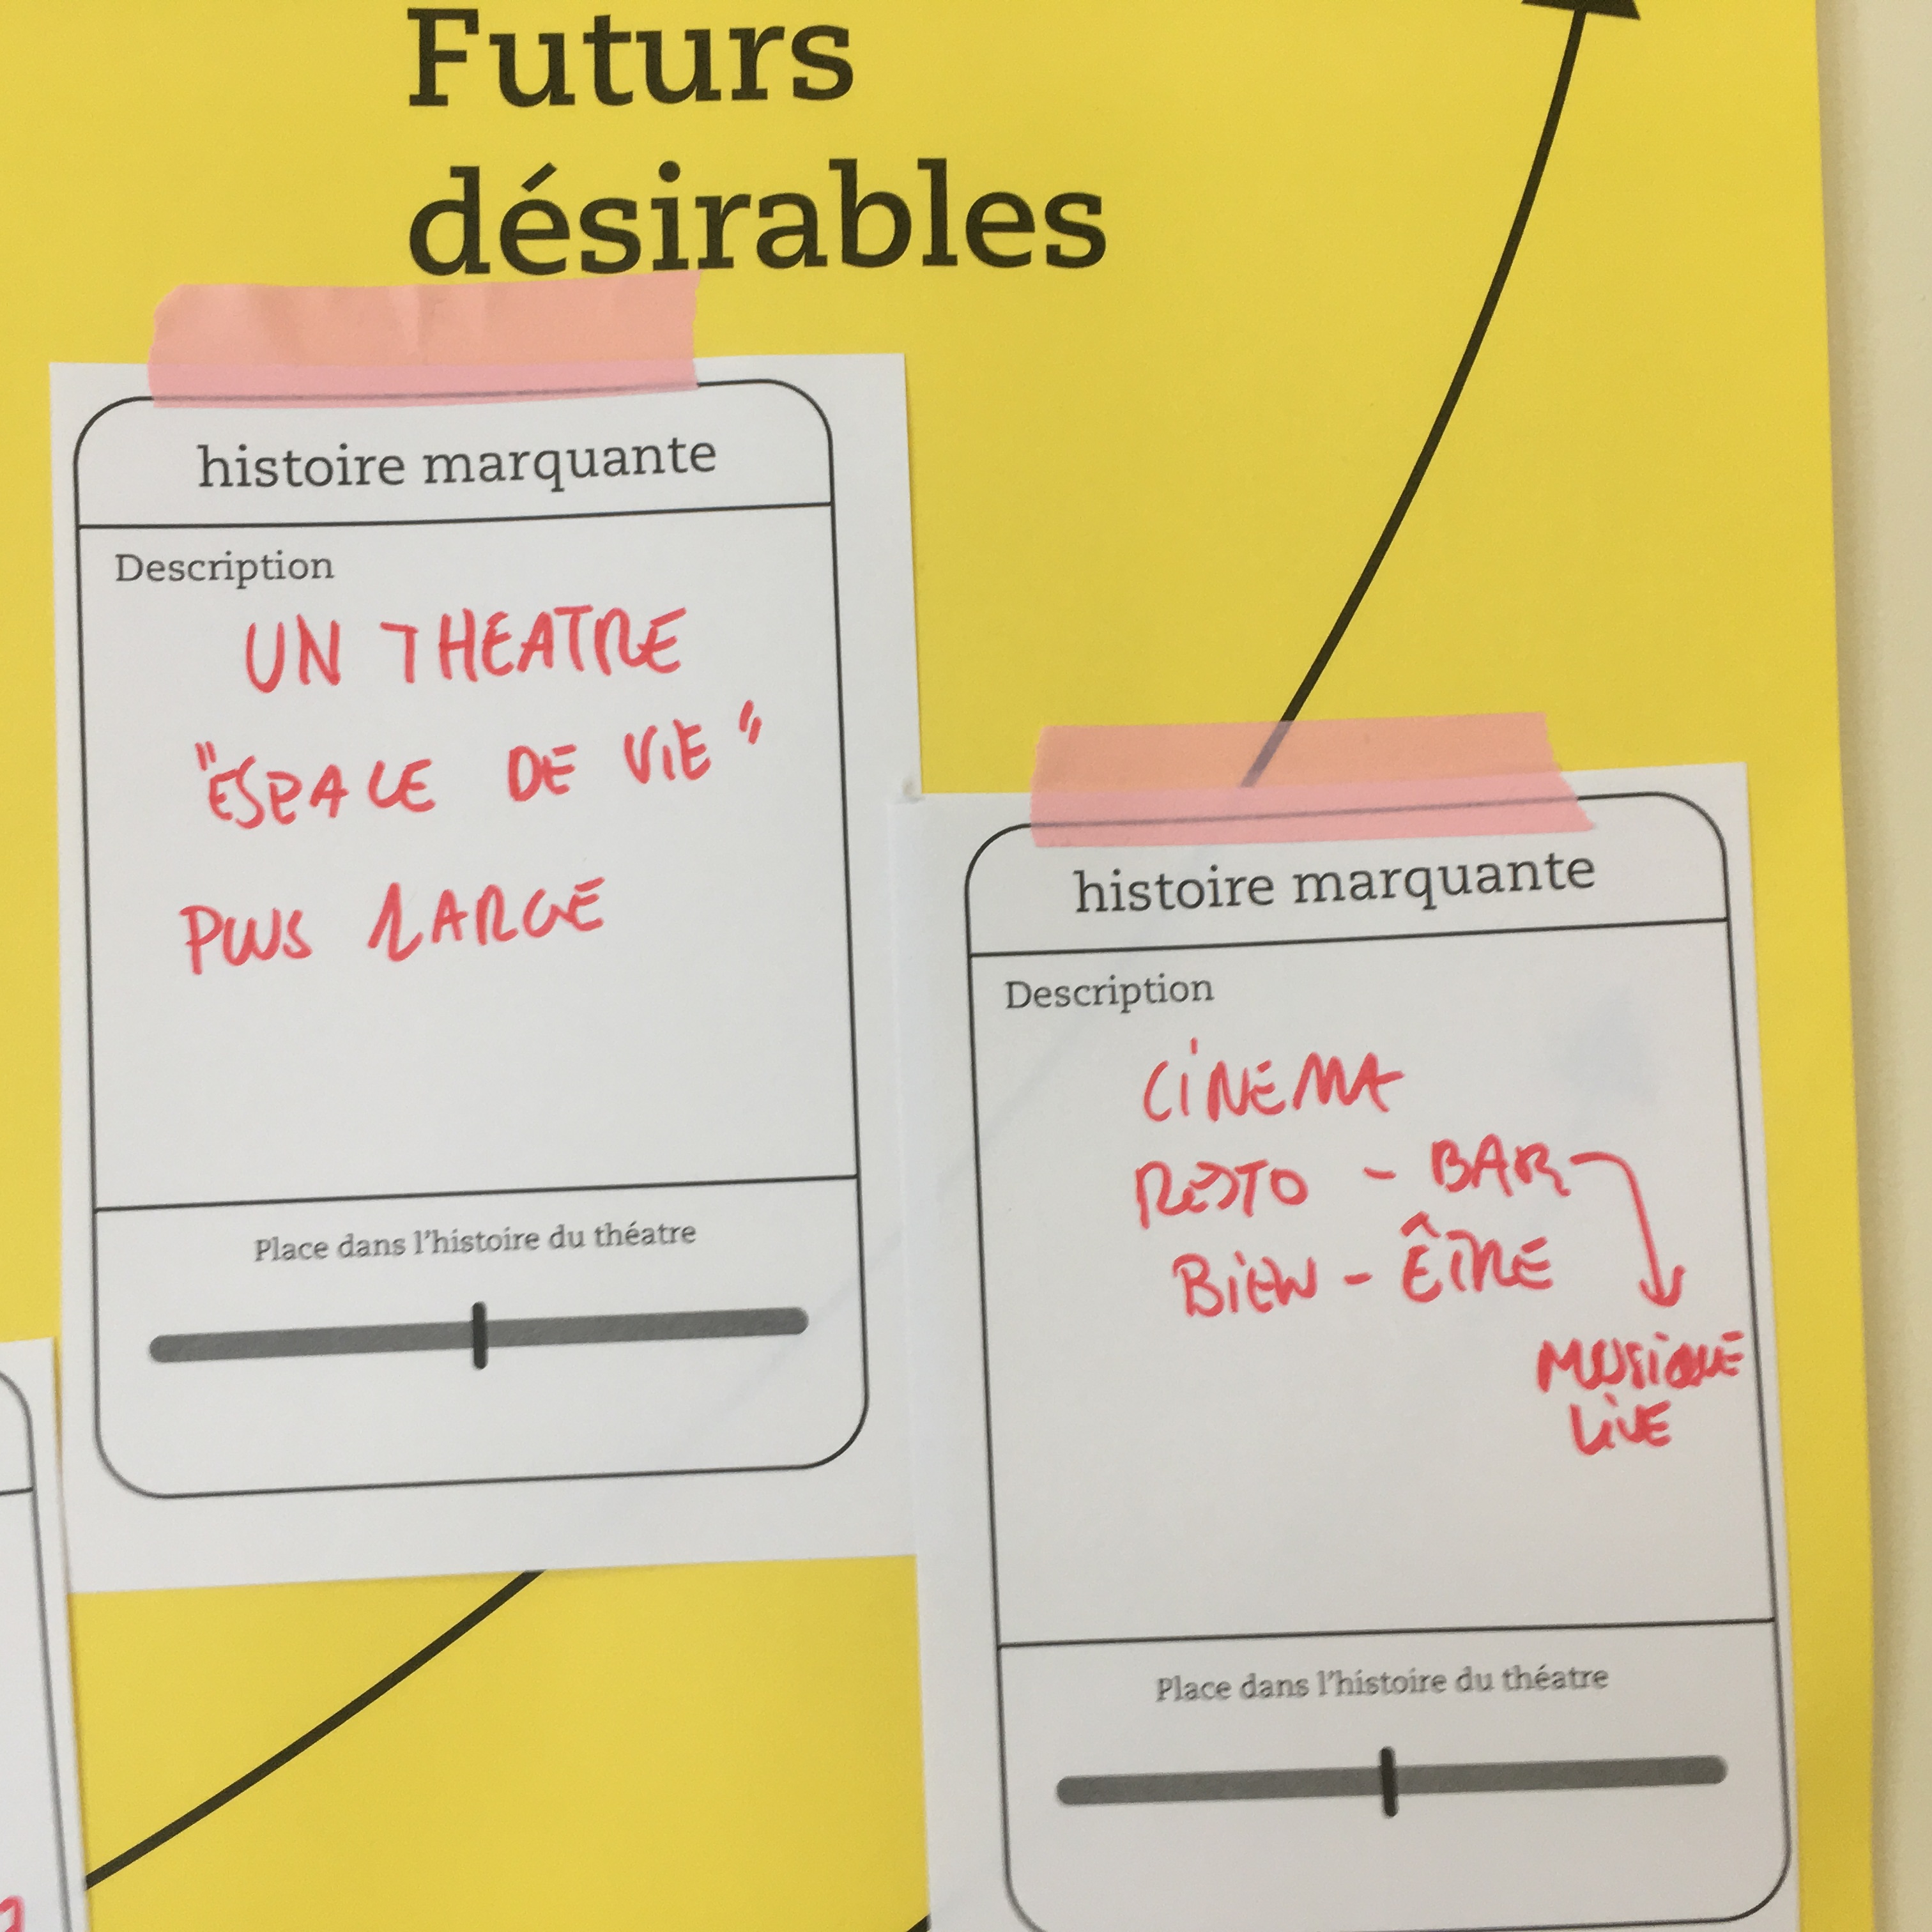 Futurs
désirables
histoire marquante
Description
UN THEATRE
"ESPACE DE VIE"
PLUS LARGE
Place dans l'histoire du théatre
histoire marquante
Description
CINEMA
RESTO - BAR
BIEN - ÊTRE
MUSIQUE
LIVE
Place dans l'histoire du théatre